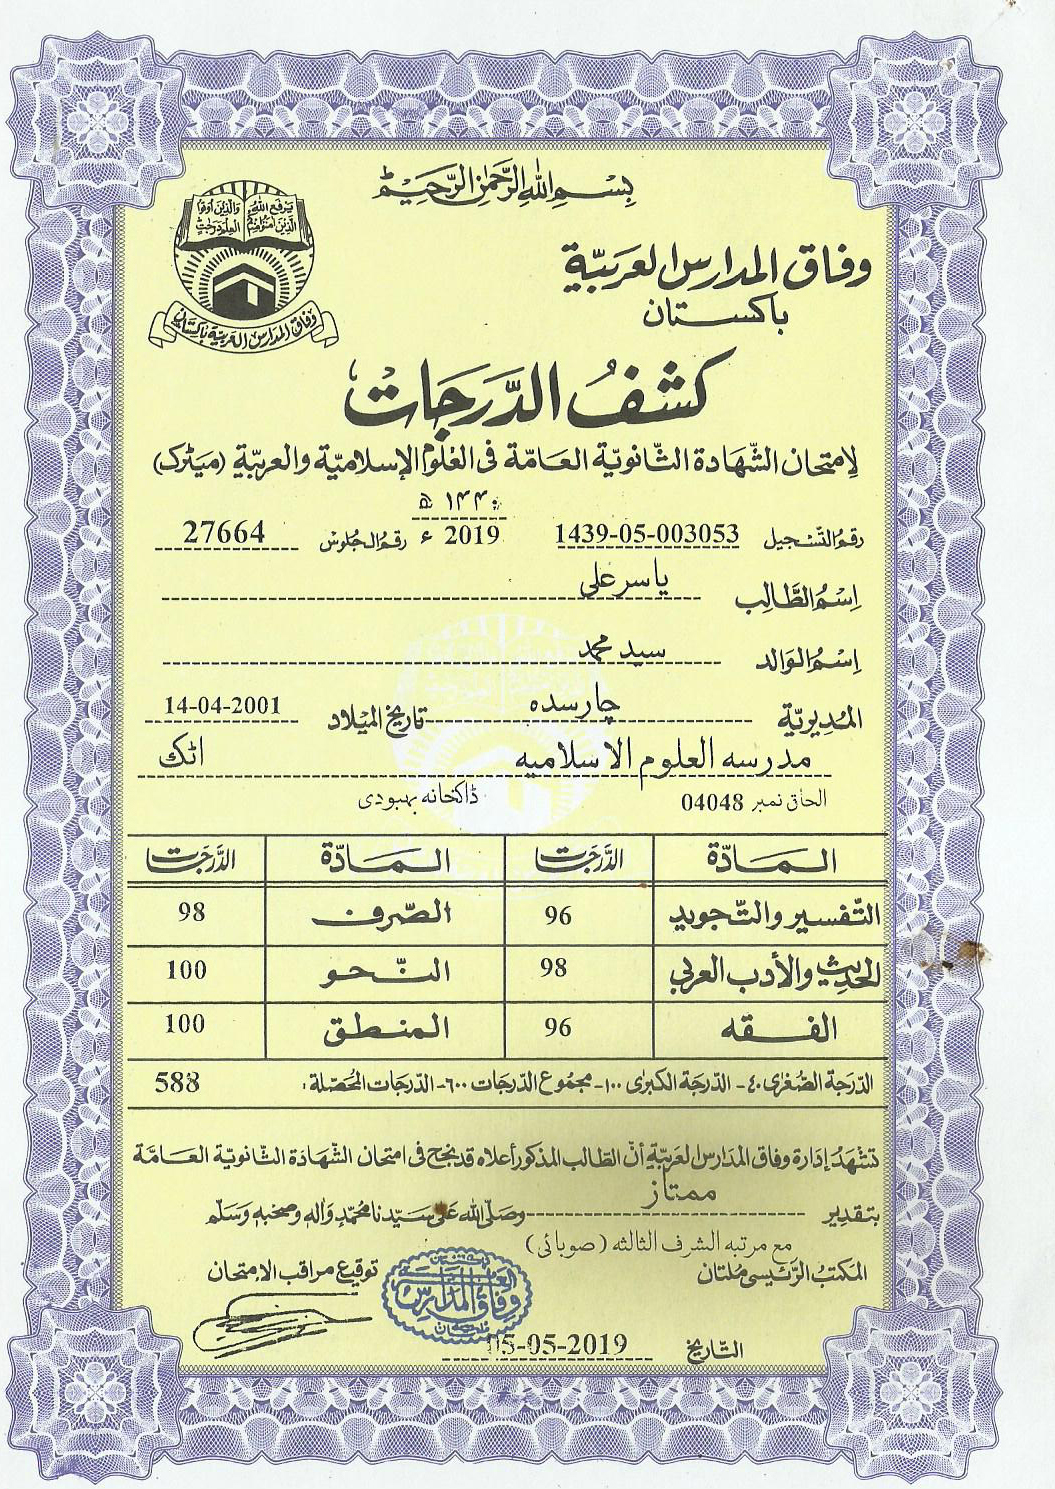 بِسْمِ اللهِ الرَّحْمٰنِ الرَّحِيْمِ
يَرفَعِ اللهُ الَّذِينَ آمَنُوا مِنْكُمْ وَالَّذِينَ أُوتُوا العِلْمَ دَرَجٰتٍ
وفاق المدارس العربيّة باكستان
وفاق المدارس العربيّة
باكستان
كشفُ الدَّرَجَات
لِامتحان الشّهادة الثّانويّة العامّة فى العُلوم الإسلاميّة والعربيّة (ميٹرک)
۱۴۴۰ ھ
رقمُ التّسجيل 1439-05-003053 2019 ء رقمُ الجُلوس 27664
اِسْمُ الطَّالِب ياسر على
اِسْمُ الوَالد سيد محمد
المُديريّة چارسده تاريخ الميلاد 14-04-2001
مدرسه العلوم الاسلاميه اٹک
الحاق نمبر 04048 ڈاکخانہ بہبودی
المَادّة الدَّرجَت المَادّة الدَّرجَت
التّفسير والتّجويد 96 الصّرف 98
الحَديث والأدب العربي 98 النّحو 100
الفقه 96 المنطق 100
الدّرجة الصُّغرىٰ ۴۰ - الدّرجة الكبرىٰ ۱۰۰ - مجمُوع الدّرجات ۶۰۰ - الدّرجات المُحصّلة : 588
تشهَدُ إدارة وفاق المدارس العَربيّة أنّ الطّالب المذكور أعلاه قد نجح فى امتحان الشّهادة الثّانويّة العامّة
بتقدير ممتاز وصَلّى الله عَلى سَيّدنا مُحمّدٍ وآله وصَحبه وسَلّم
مع مرتبه الشرف الثالثه (صوبائی)
المَكتبُ الرّئيسى مُلتان توقيع مراقب الامتحان
وفاق المدارس العربية
التّاريخ 05-05-2019